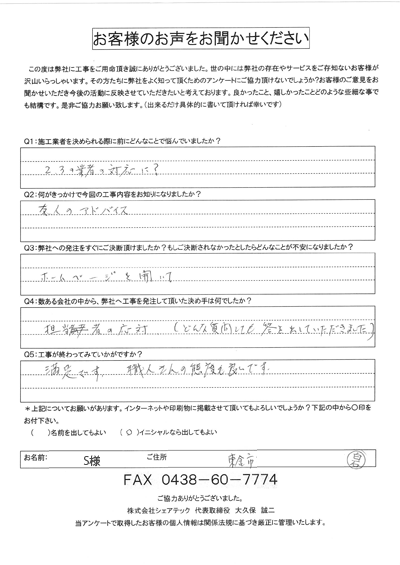 お客様のお声をお聞かせください
この度は弊社に工事をご用命頂き誠にありがとうございました。世の中には弊社の存在やサービスをご存知ないお客様が
沢山いらっしゃいます。その方たちに弊社をよく知って頂くためのアンケートにご協力頂けないでしょうか?お客様のご意見をお
聞かせいただき今後の活動に反映させていただきたいと考えております。良かったこと、嬉しかったことどのような些細な事で
も結構です。是非ご協力お願い致します。(出来るだけ具体的に書いて頂ければ幸いです)
Q1:施工業者を決められる際に前にどんなことで悩んでいましたか?
2.3の業者の対応に?
Q2:何がきっかけで今回の工事内容をお知りになりましたか?
友人のアドバイス
Q3:弊社への発注をすぐにご決断頂けましたか?もしご決断されなかったとしたらどんなことが不安になりましたか?
ホームページを開いて
Q4:数ある会社の中から、弊社へ工事を発注して頂いた決め手は何でしたか?
担当者の応対 (どんな質問にも答え出していただきました)
Q5:工事が終わってみていかがですか?
満足です。 職人さんの態度も良いです。
*上記についてお願いがあります。インターネットや印刷物に掲載させて頂いてもよろしいでしょうか?下記の中から○印を
お付下さい。
( )名前を出してもよい (○)イニシャルなら出してもよい
お名前: S様 ご住所 東金市
FAX 0438-60-7774
ご協力ありがとうございました。
株式会社シェアテック 代表取締役 大久保 誠二
当アンケートで取得したお客様の個人情報は関係法規に基づき厳正に管理いたします。